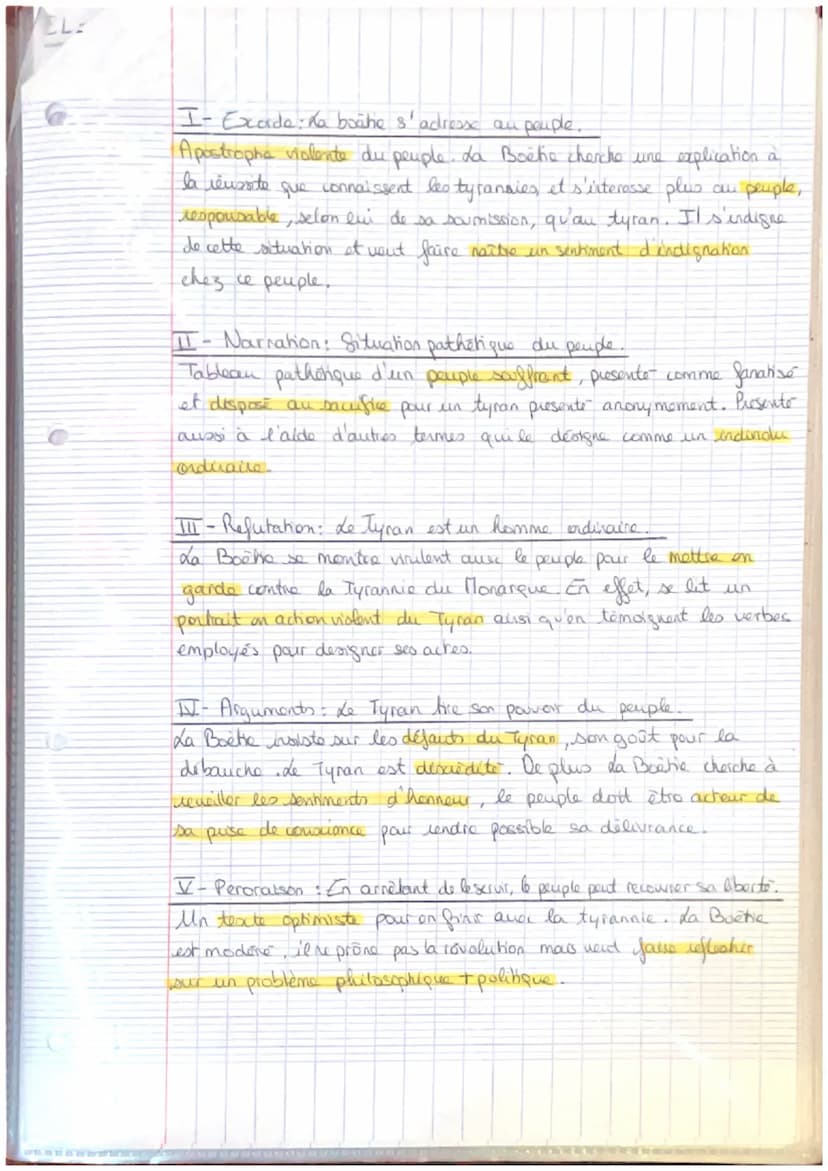 EL:
I- Exorde: La boétie s'adresse au peuple.
Apostrophe violente du peuple. La Boétie cherche une explication à
la réussite que connaissent les tyrannies, et s'interesse plus au peuple,
responsable, selon lui de sa soumission, qu'au tyran. Il s'indigne
de cette situation et veut faire naître un sentiment d'indignation
chez ce peuple.
II- Narration: Situation pathétique du peuple.
Tableau pathétique d'un peuple souffrant, présenté comme fanatisé
et disposé au sacrifice pour un tyran présenté anonymement. Présenté
aussi à l'aide d'autres termes qui le désigne comme un individu
ordinaire.
III- Refutation: Le Tyran est un homme ordinaire.
La Boétie se montre virulent avec le peuple pour le mettre en
garde contre la Tyrannie du Monarque. En effet, se lit un
portrait en action violent du Tyran ainsi qu'en témoignent les verbes
employés pour designer ses actes.
IV- Arguments: Le Tyran tire son pouvoir du peuple.
La Boétie insiste sur les défauts du Tyran, son goût pour la
débauche. Le Tyran est discrédité. De plus La Boétie cherche à
réveiller les sentiments d'honneur, le peuple doit être acteur de
sa prise de conscience pour rendre possible sa délivrance.
V- Peroraison: En arrêtant de le servir, le peuple peut recouvrer sa liberté.
Un texte optimiste pour en finir avec la tyrannie. La Boétie
est modéré, il ne prône pas la révolution mais veut faire réfléchir
sur un problème philosophique + politique.